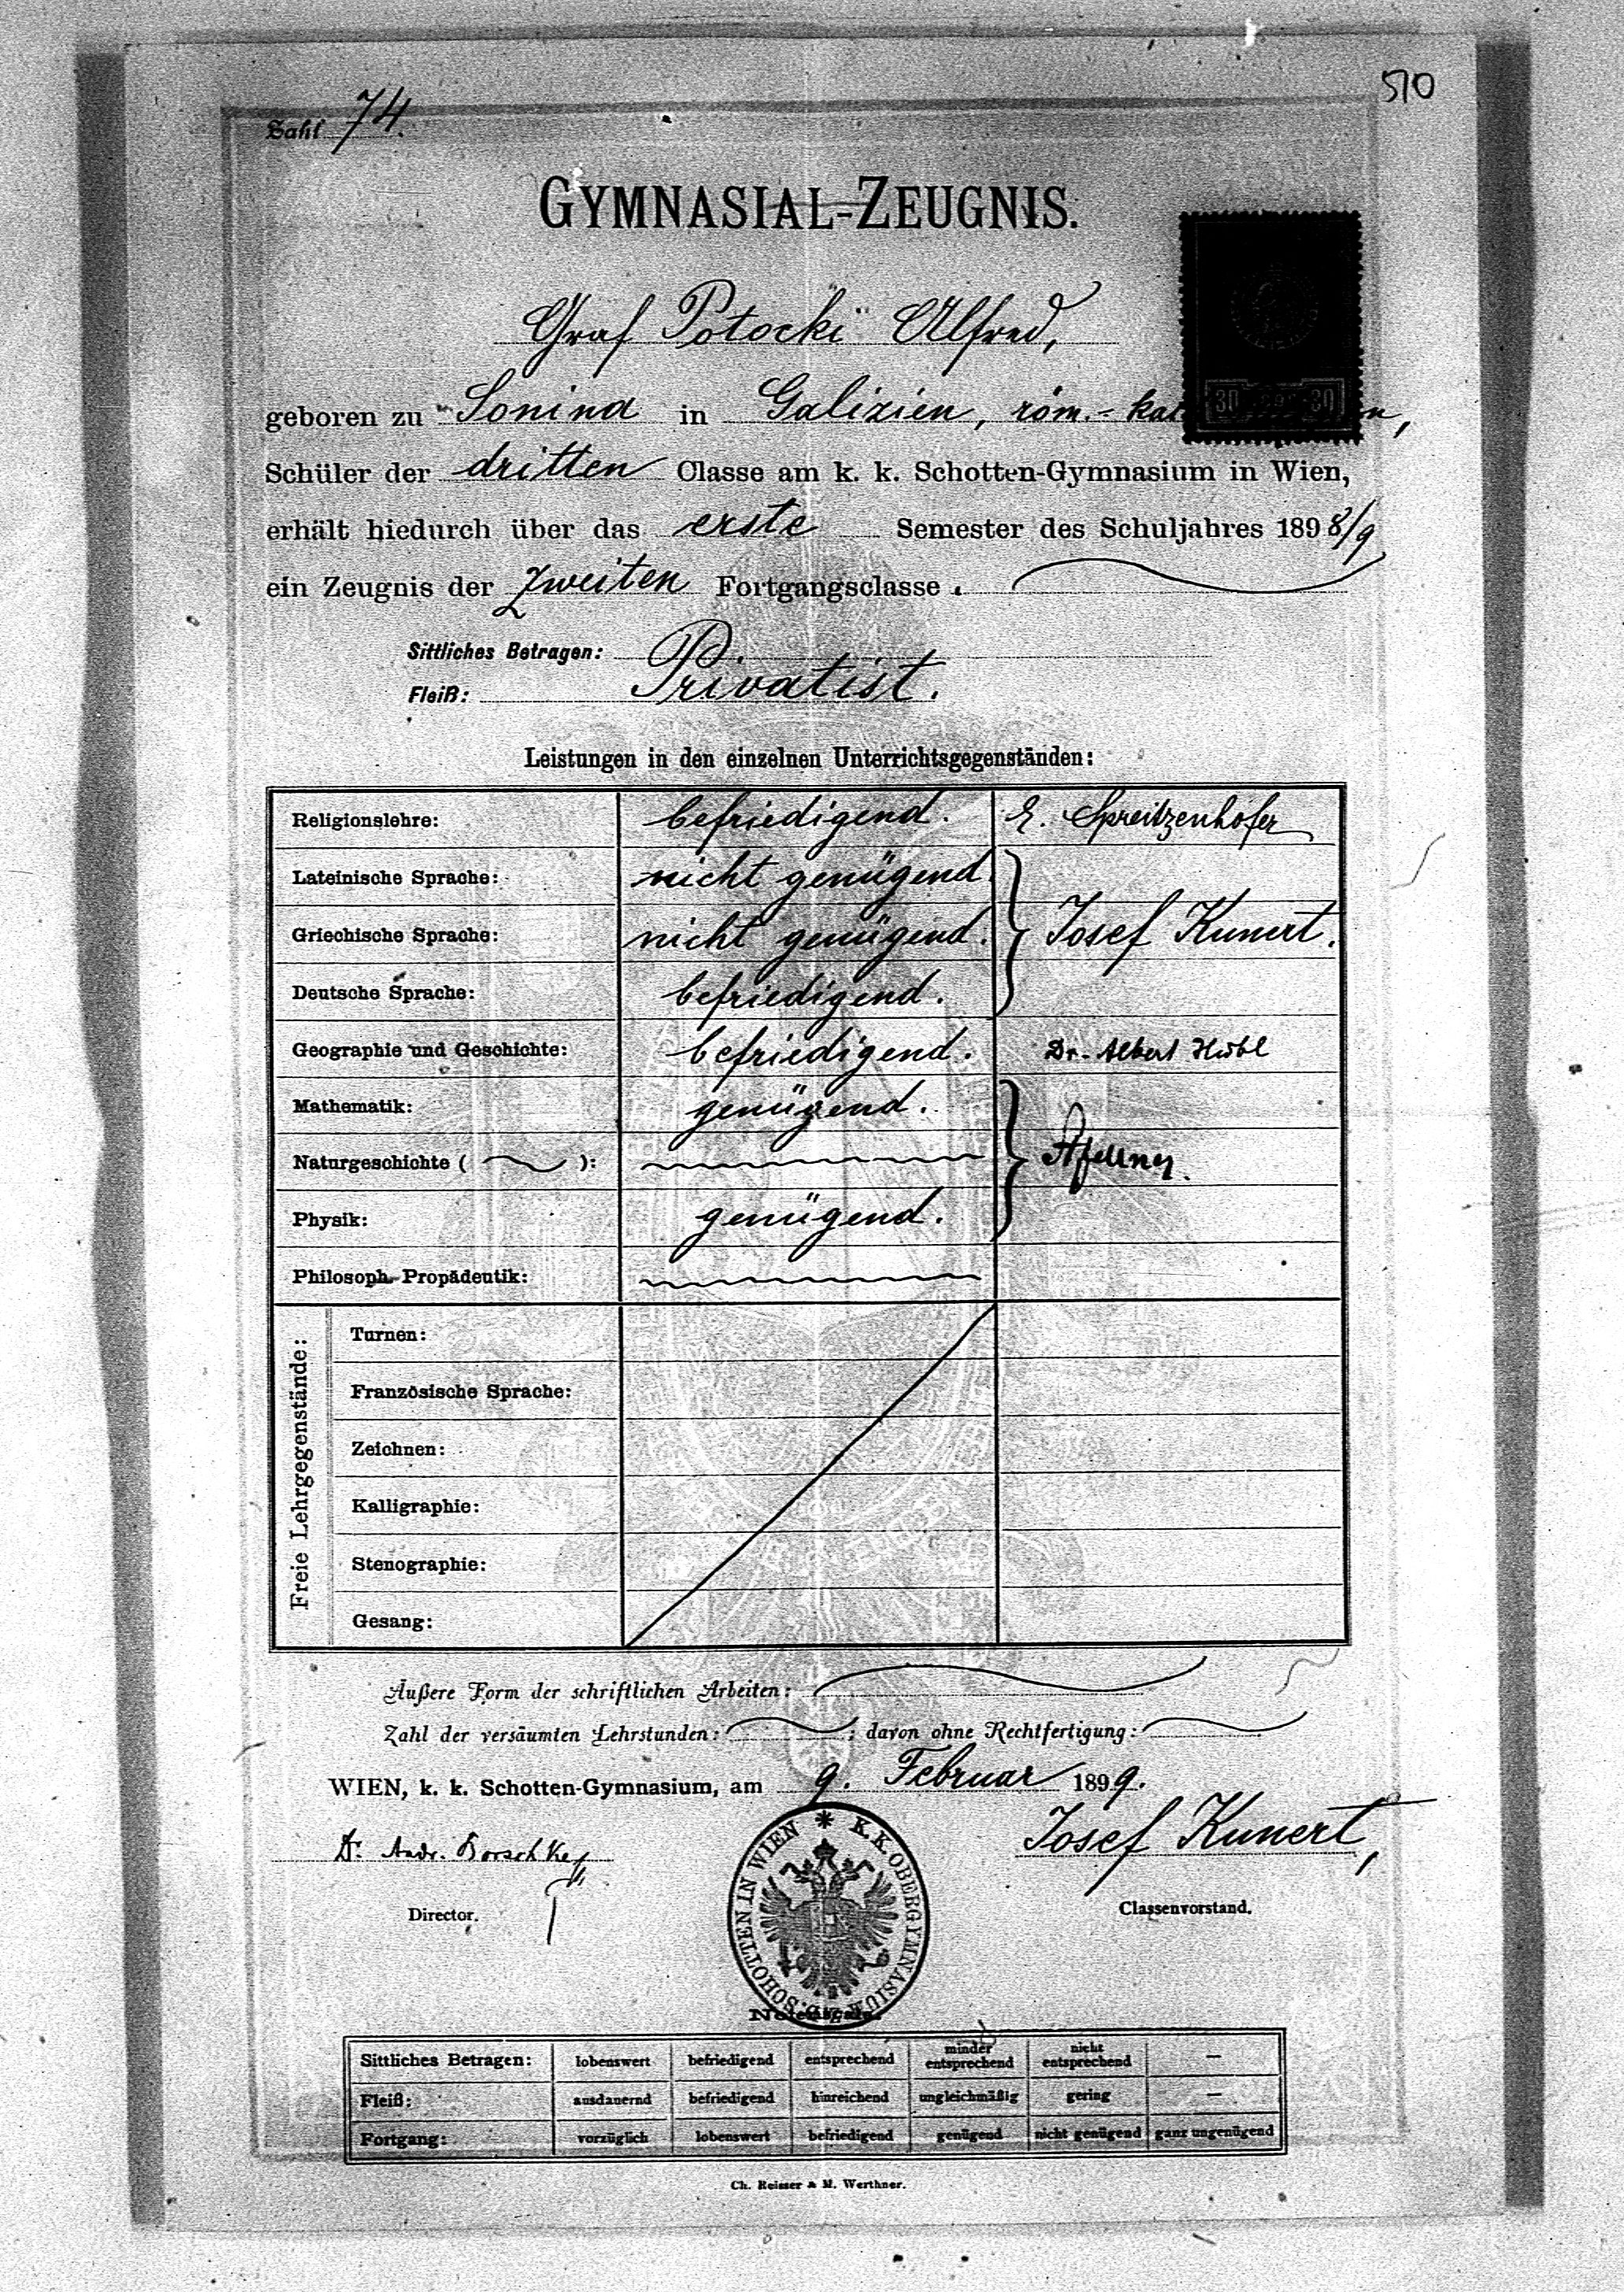 510
Zahl 74.
GYMNASIAL-ZEUGNIS.
Graf Potocki Alfred,
geboren zu Sonina in Galizien, röm.-
Schüler der dritten Classe am k. k. Schotten-Gymnasium in Wien,
erhält hiedurch über das erste Semester des Schuljahres 1898/9
ein Zeugnis der zweiten Fortgangsclasse.
Sittliches Betragen: Privatist.
Fleiß:
Leistungen in den einzelnen Unterrichtsgegenständen:
Religionslehre: befriedigend. E. Spreitzenhofer
Lateinische Sprache: nicht genügend.
Griechische Sprache: nicht genügend. Josef Kunert.
Deutsche Sprache: befriedigend.
Geographie und Geschichte: befriedigend. Dr. Albert Hübl
Mathematik: genügend.
Naturgeschichte ( ):
Physik: genügend.
Philosoph. Propädeutik:
Freie Lehrgegenstände:
Turnen:
Französische Sprache:
Zeichnen:
Kalligraphie:
Stenographie:
Gesang:
Äußere Form der schriftlichen Arbeiten:
Zahl der versäumten Lehrstunden: ; davon ohne Rechtfertigung:
WIEN, k. k. Schotten-Gymnasium, am 9. Februar 1899.
Dr. Andr. Borschke Josef Kunert,
Director. Classenvorstand.
K. K. OBERGYMNASIUM Z. D. SCHOTTEN IN WIEN
Notenscala.
Sittliches Betragen: lobenswert befriedigend entsprechend minder entsprechend nicht entsprechend —
Fleiß: ausdauernd befriedigend hinreichend ungleichmäßig gering —
Fortgang: vorzüglich lobenswert befriedigend genügend nicht genügend ganz ungenügend
Ch. Reisser & M. Werthner.